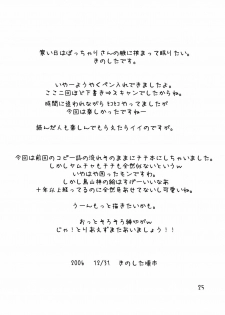 寒い日はぽっちゃりさんの腋に挟まって眠りたい。
きのしたです。
いやーようやくペン入れできましたよ。
ここ二回ほど下書き⇒スキャンでしたからね。
時間に追われながらヒィヒィでしたが
今回は楽しかったですねー
読んだ人も楽しんでもらえたらイイのですが。
今回は前回のコピー誌の流れそのままにチチ本にしちゃいました。
しかしヤムチャもチチも全然似ないというｗ
いやはや困ったモンですわ。
しかし鳥山林の絵はすげーいいなあ
十年以上経ってるのに全然色あせてないし可愛いね。
うーんもっと描きたいかも。
おっとそろそろ締切がｗ
じゃ！とりあえずまたあいましょう！！
2006　12/31　きのした順市
25